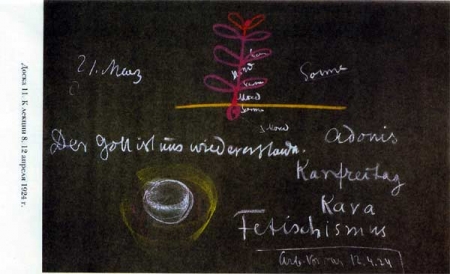 Доска 11. К лекции 8. 12 апреля 1924 г.
21. März
Sonne
Mond
Sonne
Mond
Sonne
Der Gott ist uns wiedererstanden.
Adonis
Karfreitag
Kara
Fetischismus
12.4.24